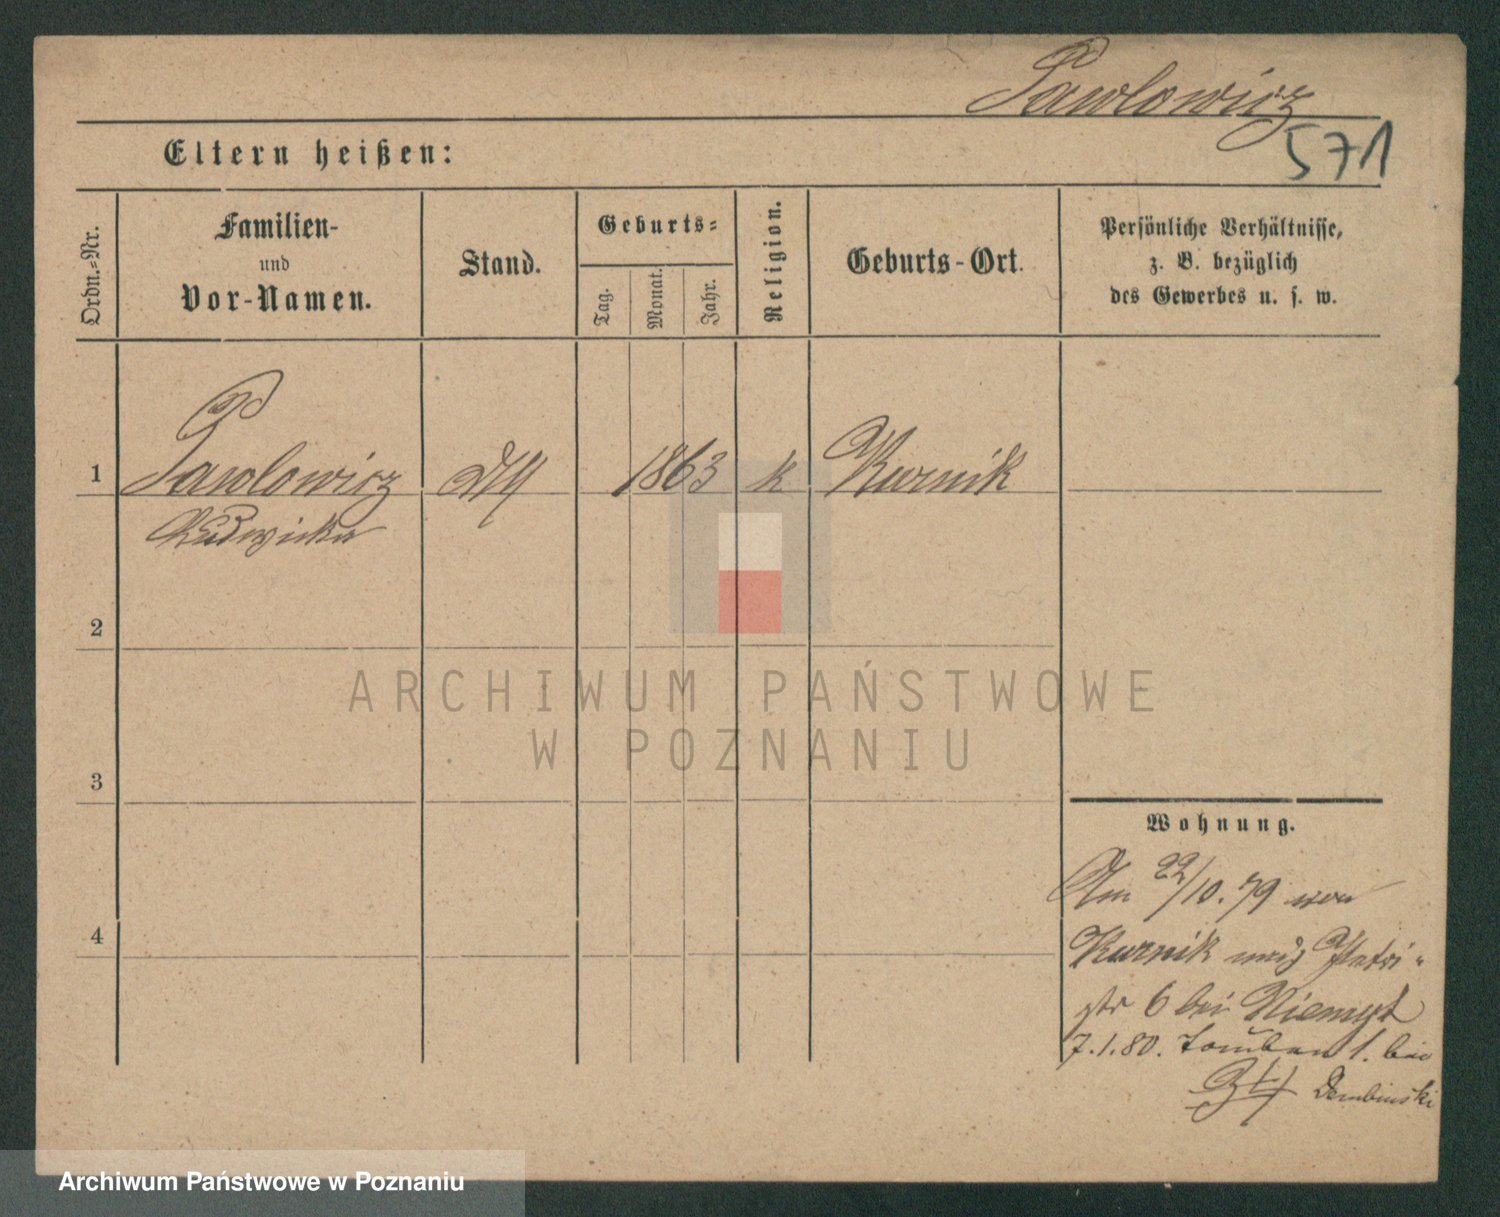 Pawlowicz
571
Eltern heißen:
Ordn.=Nr.
Familien-
und
Vor-Namen.
Stand.
Geburts=
Tag.
Monat.
Jahr.
Religion.
Geburts-Ort.
Persönliche Verhältnisse,
z. B. bezüglich
des Gewerbes u. s. w.
1 Pawlowicz 1863 k Kurnik
Ludwicka
2
ARCHIWUM PAŃSTWOWE
W POZNANIU
3
Wohnung.
Am 22/10.79 von
4
Kurnik nach Petri-
str 6 bei Niemyt
7.1.80. Tauben 1. bei
Dembinski
Archiwum Państwowe w Poznaniu